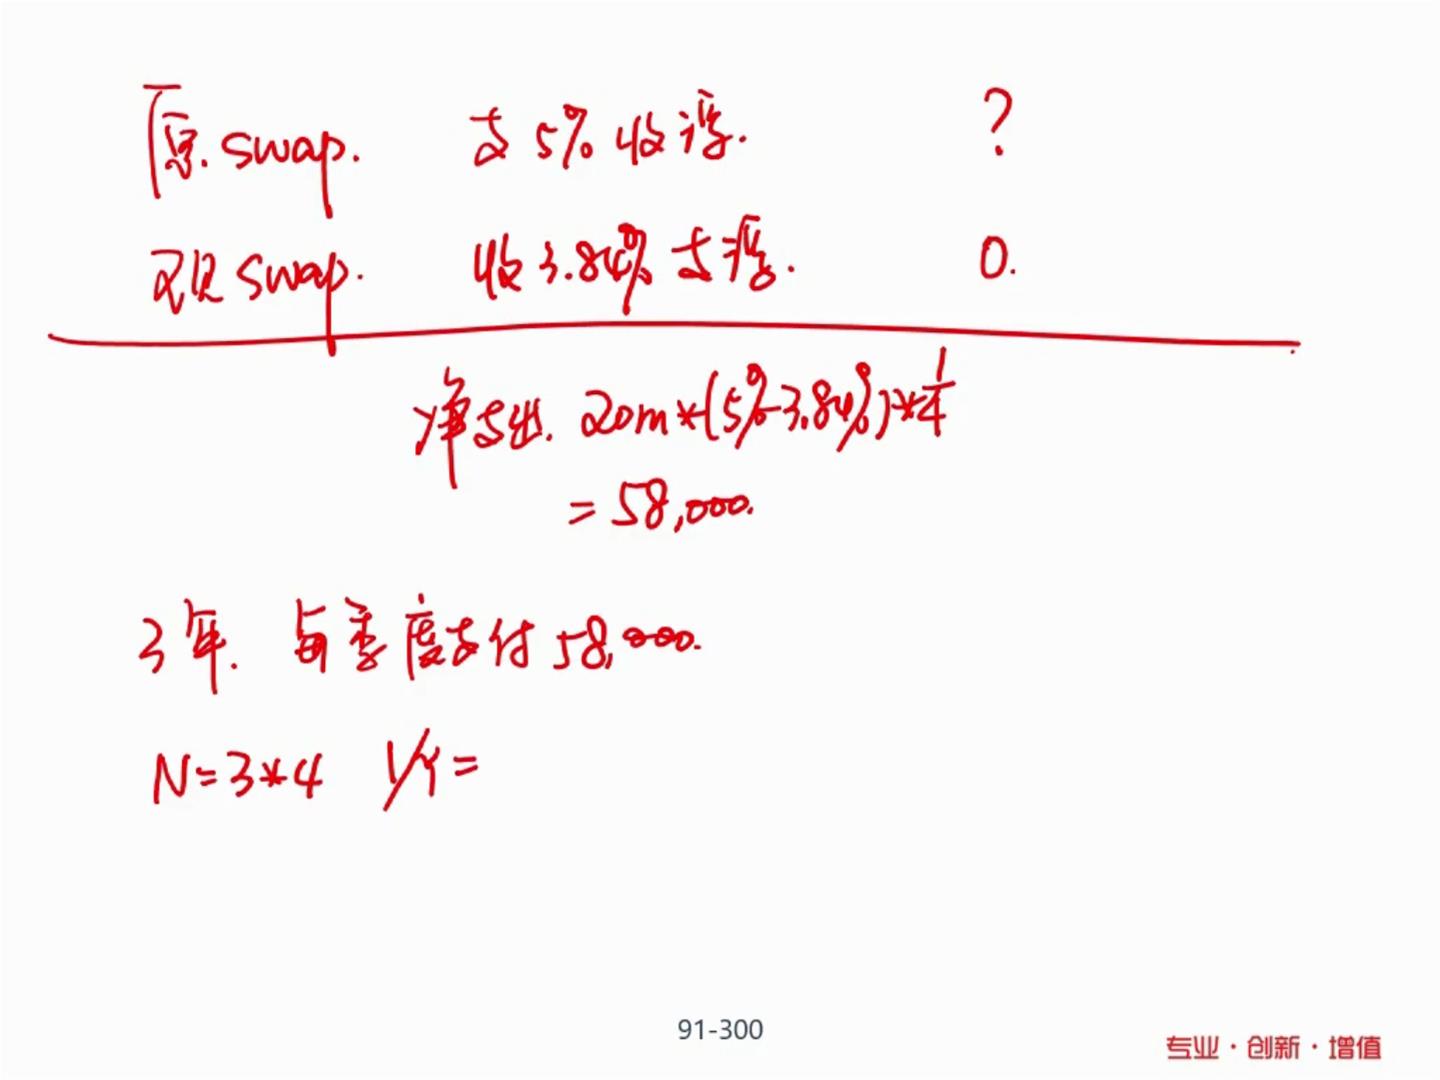 原.swap. 支5%收浮. ?
现swap. 收3.84%支浮. 0.
净支出. 20m*(5%-3.84%)*1/4
=58,000.
3年. 每季度支付58,000.
N=3*4 I/Y=
91-300
专业·创新·增值